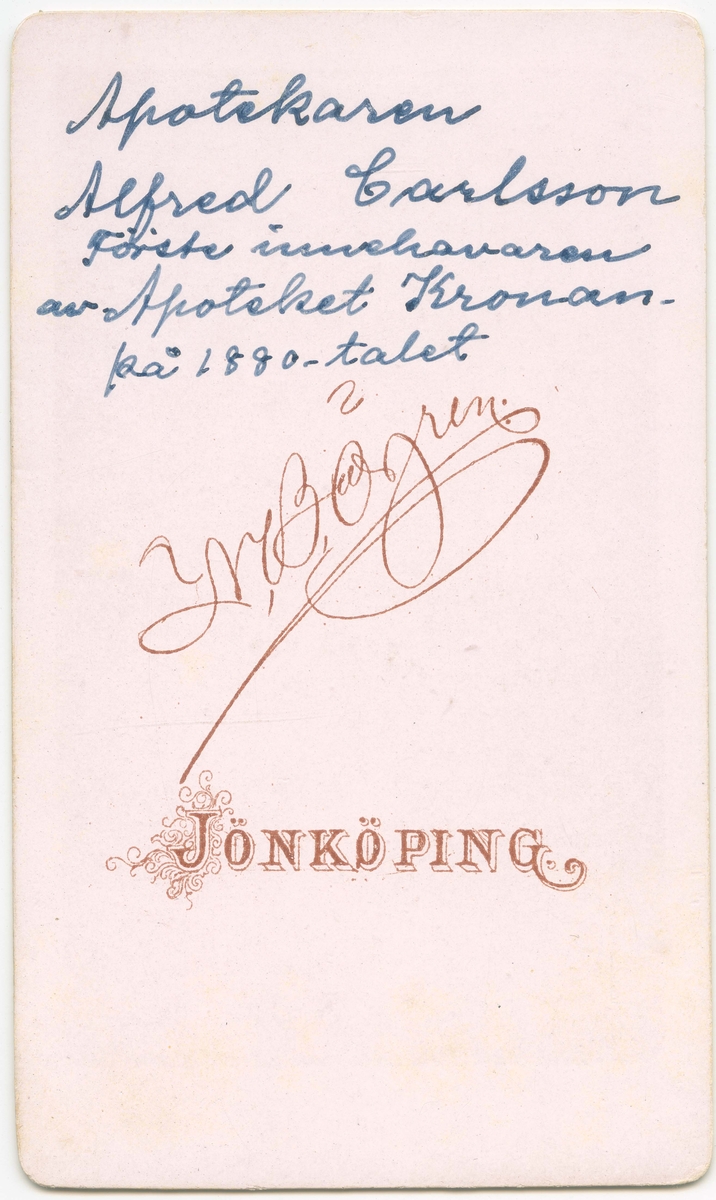 Apotekaren
Alfred Carlsson
Förste innehavaren
av Apoteket Kronan-
på 1880-talet
JÖNKÖPING.